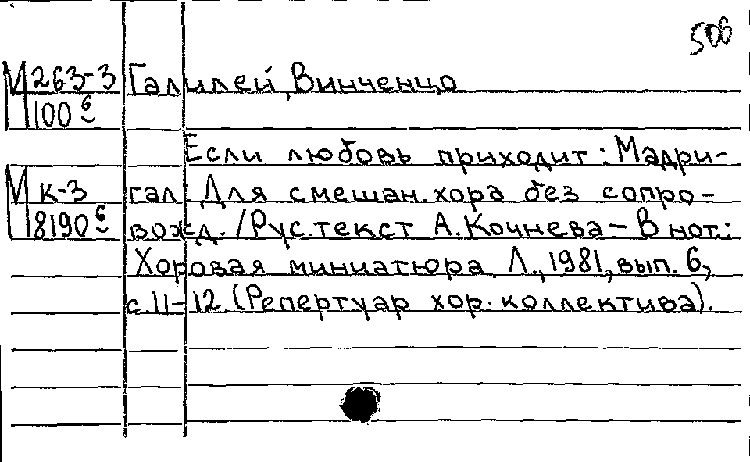 506
М 263-3 Галилей, Винченцо
100 6
Если любовь приходит: Мадри-
М к-3 гал. Для смешан. хора без сопро-
8190 6 вожд. /Рус. текст А. Кочнева – В нот.:
Хоровая миниатюра. Л., 1981, вып. 6,
с. 11-12. (Репертуар хор. коллектива).